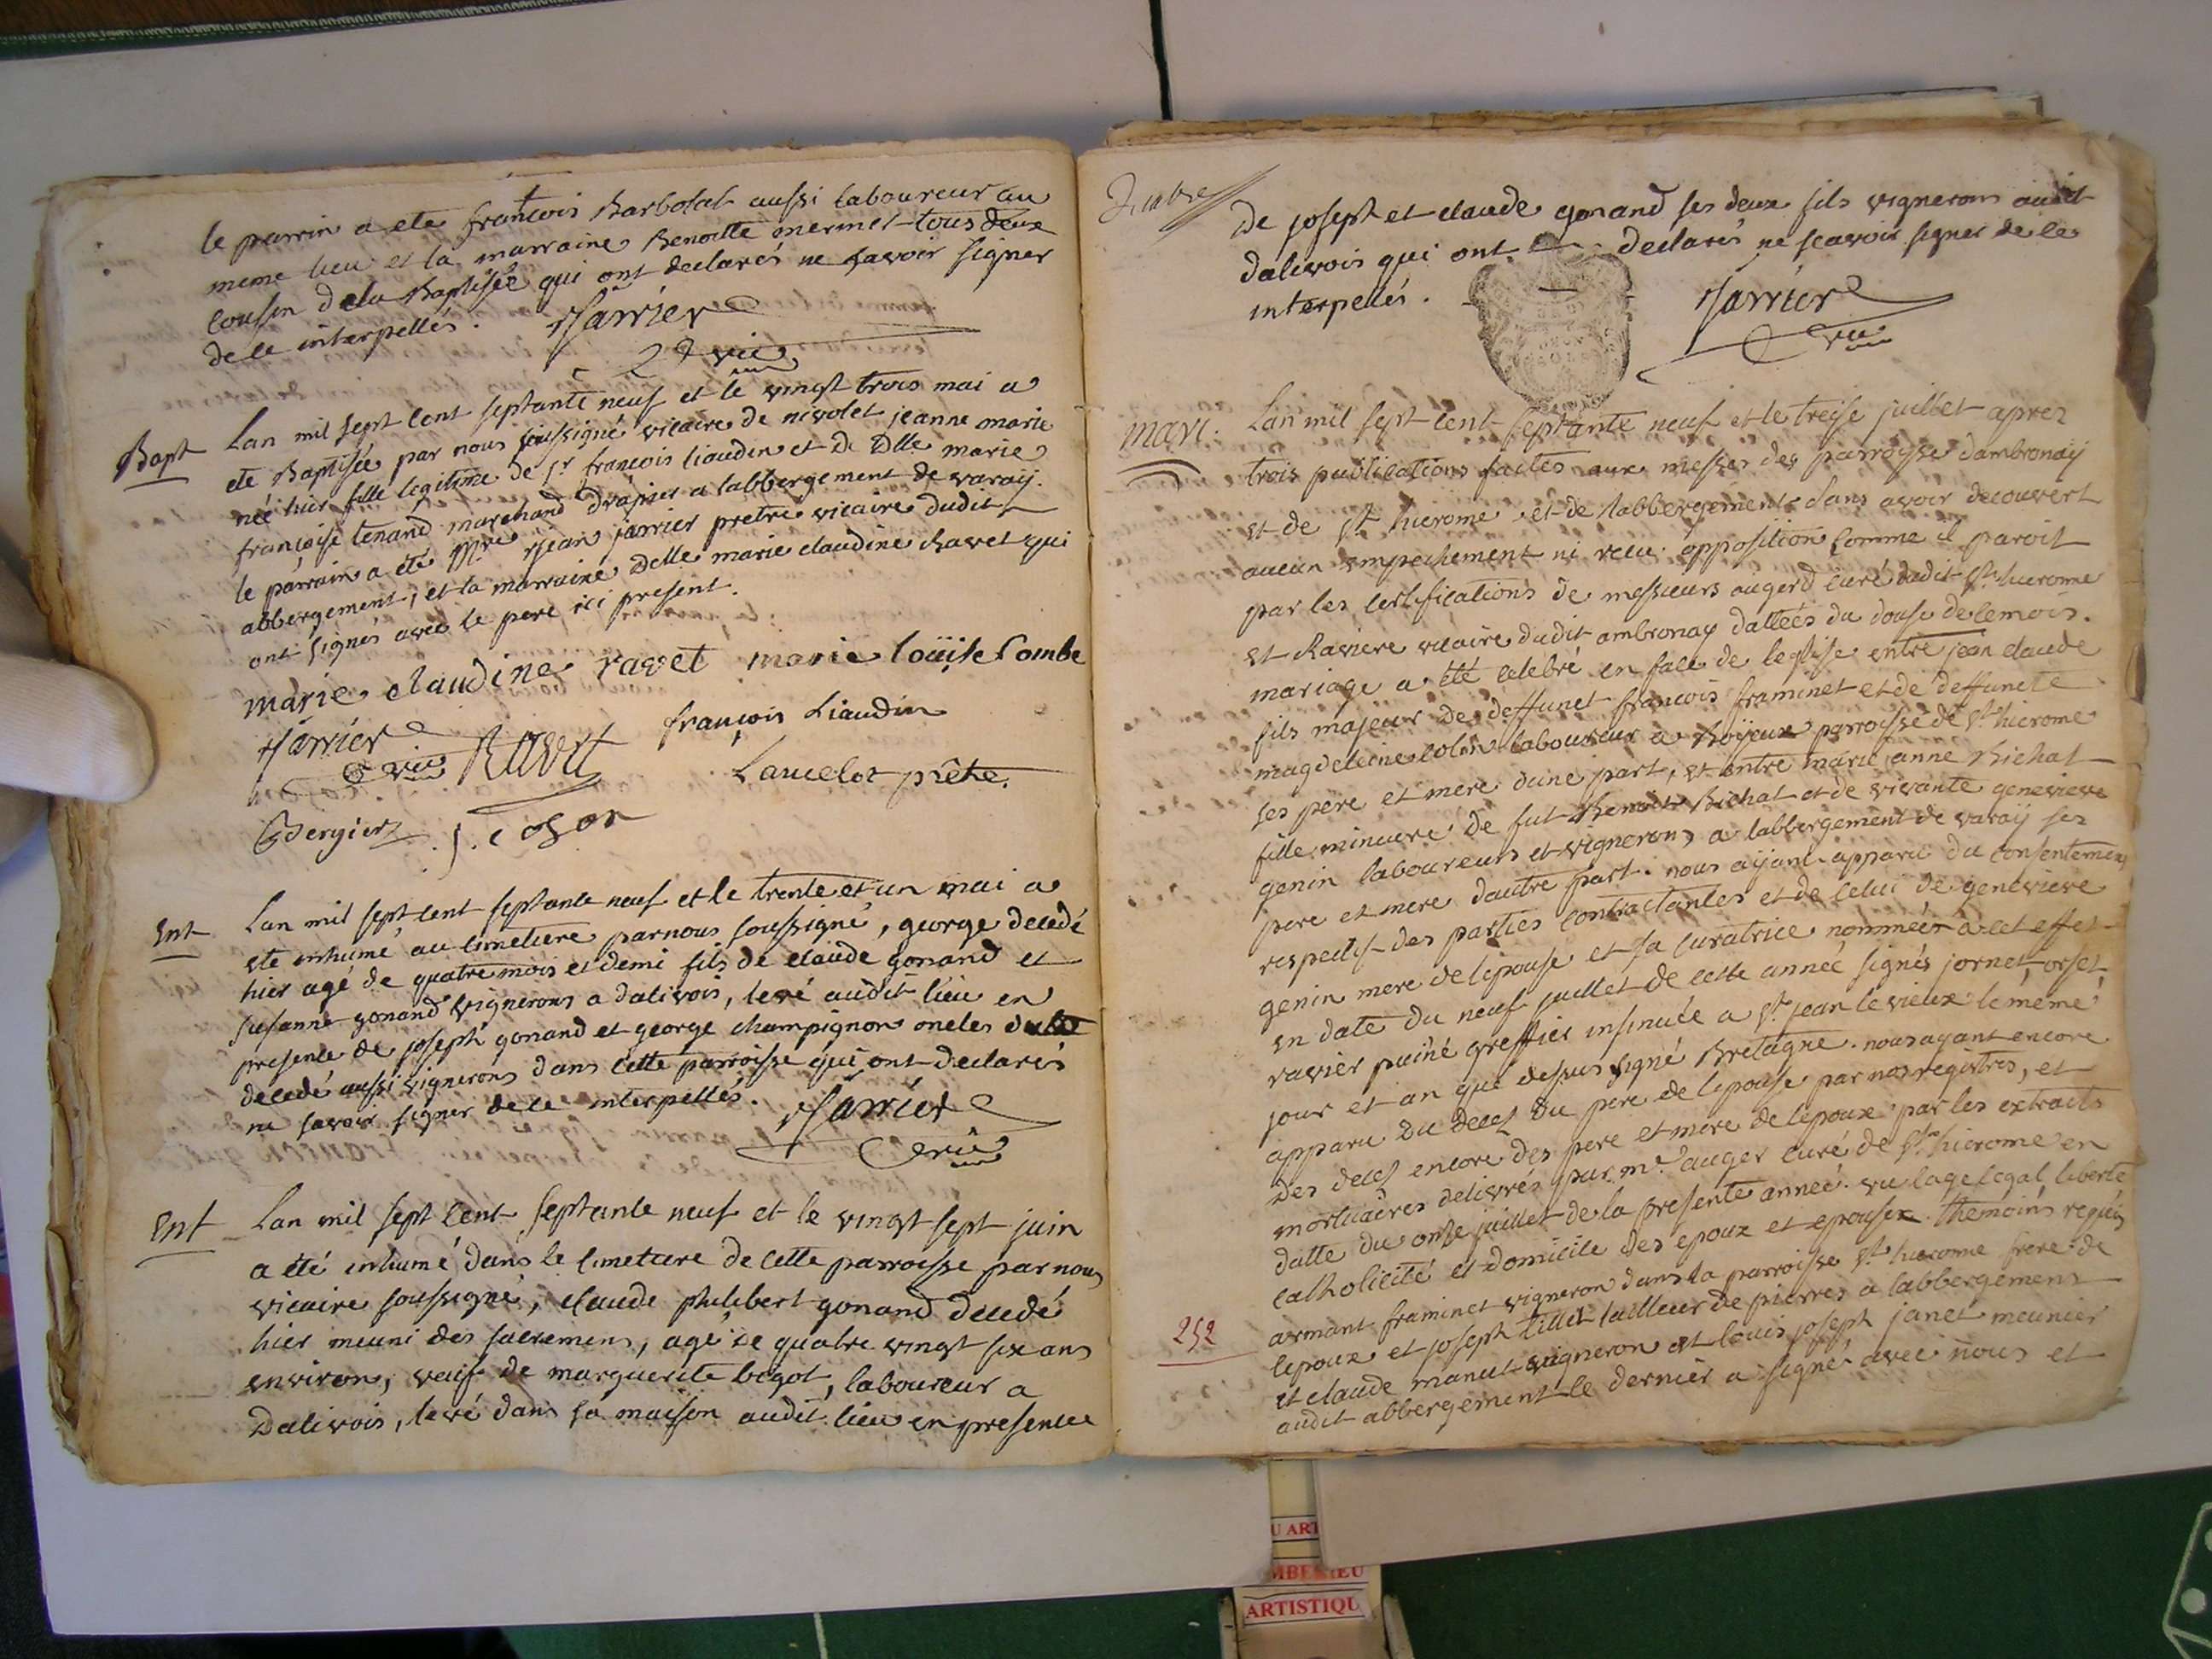 le parrin a ete francois Barbolat aussi laboureur au
meme lieu et la marraine Benoitte mermet tous deux
cousin dela Baptisée qui ont declarés ne savoir signer
de ce interpellés. Jarrier
vic
Bapt Lan mil sept cent septante neuf et le vingt trois mai a
ete Baptisée par nous soussigné vicaire de nivolet jeanne marie
née hier fille legitime de Sr francois liaudin et de Dlle marie
francoise tenand marchand drapier a labbergement de varaÿ.
le parrain a été Mre jean jarrier pretre vicaire dudit
abbergement, et la marraine Delle marie claudine Ravet qui
ont signés avec le pere ici present.
marie claudine ravet marie loüise Combe
Jarrier vic Ravet françois Liaudin
Lancelot prêtre.
Bergier J. Coson
Ent Lan mil sept cent septante neuf et le trente et un mai a
ete inhumé au cimetiere par nous soussigné, george decedé
hier agé de quatre mois et demi fils de claude gonand et
susanne gonand vignerons a dalivois, levé audit lieu en
presence de joseph gonand et george champignon oncles du
decedé aussi vignerons dans cette parroisse qui ont declarés
ne savoir signer de ce interpellés. Jarrier
vic
Ent Lan mil sept cent septante neuf et le vingt sept juin
a été inhumé dans le cimetiere de cette parroisse par nous
vicaire soussigné, claude philibert gonand decedé
hier meuni des sacremens, agé de quatre vingt six ans
environ, veuf de marguerite bigot, laboureur a
Dalivois, levé dans sa maison audit lieu en presence
de joseph et claude gonand ses deux fils vignerons audit
dalivois qui ont declarés ne scavoir signer de ce
interpellés. Jarrier
vic
mari. Lan mil sept cent septante neuf et le treise juillet aprez
trois publications faites aux messes des parroisse dambronaÿ
et de st hierome et de labbergement sans avoir decouvert
aucun empechement ni recu opposition comme il paroit
par les certifications de messieurs augerd curé dudit st hierome
et Raviere vicaire dudit ambronay dattées du douse de ce mois.
mariage a été celebré en face de leglise entre jean claude
fils majeur de deffunct francois framinet et de deffuncte
magdeleine colin laboureur a Boÿeux parroisse de st hierome
ses pere et mere dune part, et entre marie anne Bichat
fille mineure de fut Benoit Bichat et de vivante genevieve
genin laboureurs et vignerons a labbergement de varaÿ ses
pere et mere dautre part. nous aÿant apparu du consentement
respectif des parties contractantes et de celui de genevieve
genin mere de lepouse et sa curatrice nommée a cet effet
en date du neuf juillet de cette année signés jornet, orset
ravier puiné greffier insinuée a st jean le vieux le meme
jour et an que dessus signé Bretagne. nous ayant encore
apparu du decès du pere de lepouse par nos registres, et
des decès encore des pere et mere de lepoux par les extraits
mortuaires delivrés par mr auger curé de st hierome en
datte du onse juillet de la presente année. vu lage legal liberté
catholicité et domicile des epoux et epouse. themoins requis
armant framinet vigneron dans la parroisse st hierome frere de
lepoux et joseph tillet tailleur de pierres a labbergement
252
et claude manut vigneron et louis joseph janet meunier
audit abbergement le dernier a signé avec nous et
U ART
MBERIEU
ARTISTIQU